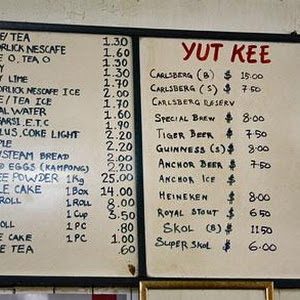 E/ TEA 1.30
ORLICK NESCAFE 1.60
E O, TEA O
Y 1.30
Y LIME 1.70
ORLICK NESCAFE ICE 2.00
E/ TEA ICE 1.70
AL WATER 1.60
GARS), ETC. 1.90
LUS, COKE LIGHT 2.20
PLE 2.20
NSTEAM BREAD 2.00
D EGGS (KAMPONG) 2.20
EE POWDER 1 Kg 25.00
LE CAKE 1 Box 14.00
1 Roll 8.00
1 Cup 3.50
ROLL 1 PC .80
E CAKE 1 PC 1.00
E TEA .60
YUT KEE
CARLSBERG (B) $ 15.00
CARLSBERG (S) $ 7.50
CARLSBERG RESERV
SPECIAL BREW $ 8.00
TIGER BEER $ 7.50
GUINNESS (S) $ 8.00
ANCHOR BEER $ 7.50
ANCHOR ICE $
HEINEKEN $ 8.00
ROYAL STOUT $ 6.50
SKOL (B) $ 11.50
SUPER SKOL $ 6.00